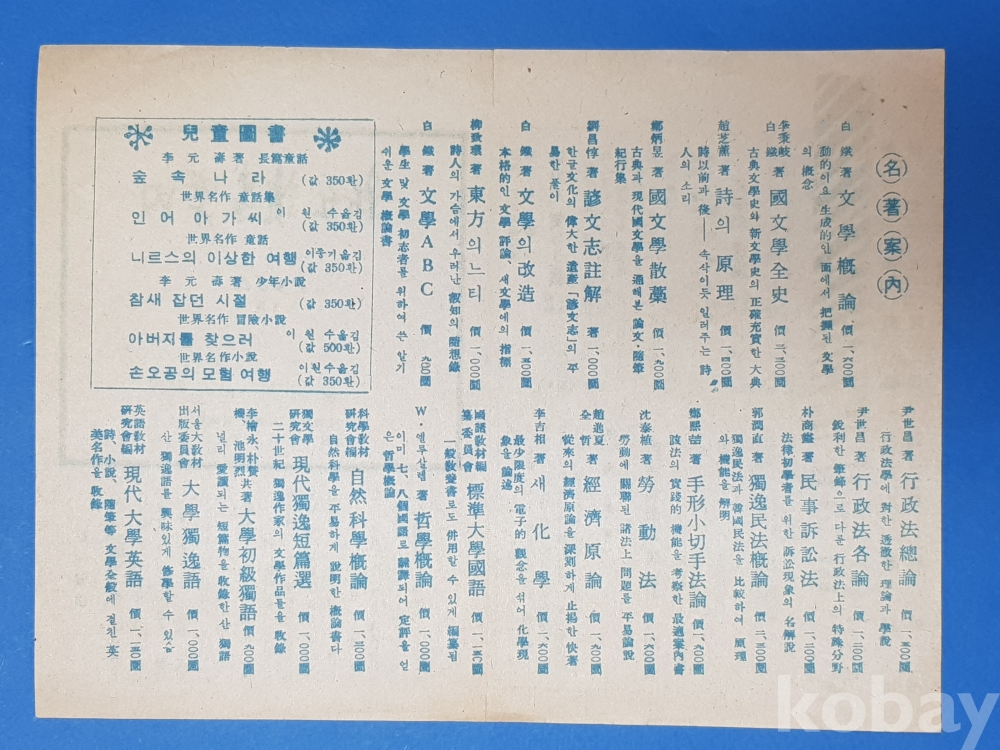 名著案內
白鐵 著 文學槪論 價 一、六〇〇圜
動的이요 生成的인 面에서 把握된 文學
의 槪念
李秉岐 白鐵 著 國文學全史 價 三、三〇〇圜
古典文學史와 新文學史의 正確充實한 大典
趙芝薰 著 詩의 原理 價 一、四〇〇圜
詩以前과 後—— 속삭이듯 일러주는 詩
人의 소리
鄭炳昱 著 國文學散藁 價 一、九〇〇圜
古典과 現代國文學을 通해본 論文・隨筆
紀行集
劉昌惇 著 諺文志註解 著 一、〇〇〇圜
한글文化의 偉大한 遺產「諺文志」의 平
易한 풀이
白鐵 著 文學의 改造 價 一、五〇〇圜
本格的인 文學 評論、새文學에의 指標
柳致環 著 東方의 느티 價 一、〇〇〇圜
詩人의 가슴에서 우러난 叡知의 隨想錄
白鐵 著 文學ABC 價 九〇〇圜
學生 및 文學 初志者를 위하여 쓴 알기
쉬운 文學 槪論書
兒童圖書
李元壽著 長篇童話
숲 속 나라 (값 350환)
世界名作 童話集
인어 아가씨 이원수옮김 (값 350환)
世界名作 童話
니르스의 이상한 여행 이종기옮김 (값 350환)
李元壽著 少年小說
참새 잡던 시절 (값 350환)
世界名作 冒險小說
아버지를 찾으러 이원수옮김 (값 500환)
世界名作小說
손오공의 모험 여행 이원수옮김 (값 350환)
尹世昌 著 行政法總論 價 一、〇〇圜
行政法學에 對한 透徹한 理論과 學說
尹世昌 著 行政法各論 價 一、三〇〇圜
銳利한 筆鋒으로 다룬 行政法上의 特殊分野
朴商鎰 著 民事訴訟法 價 二、三〇〇圜
法律初學者를 위한 訴訟現象의 名解說
郭潤直 著 獨逸民法槪論 價 二、三〇〇圜
獨逸民法과 韓國民法을 比較하여 原理
와 機能을 解明
鄭熙喆 著 手形小切手法論 價 一、九〇〇圜
該法의 實踐的 機能을 考察한 最適案內書
沈泰植 著 勞動法 價 一、六〇〇圜
勞動에 關聯된 諸法上 問題를 平易論說
趙進夏 全哲 著 經濟原論 價 一、六〇〇圜
從來의 經濟原論을 深刻하게 止揚한 快著
李吉相 著 새化學 價 一、六〇〇圜
最少限度의 電子的 觀念을 섞어 化學現
象을 論述
國語敎材編纂委員會 標準大學國語 價 一、一五〇圜
一般敎養書로도 併用할 수 있게 編纂됨
W・엘루살렘 著 哲學槪論 價 一、〇〇〇圜
이미 七、八個國語로 飜譯되어 定評을 얻
은 哲學槪論
科學敎材研究會編 自然科學槪論 價 一、三〇〇圜
自然科學을 平易하게 說明한 槪論書다
獨文學研究會 現代獨逸短篇選 價 一、三〇〇圜
二十世紀 獨逸作家의 文學作品들을 收錄
李檜永・朴贊機 池明烈共著 大學初級獨語 價 九〇〇圜
널리 愛讀되는 短篇物을 收錄한 산 獨語
서울大敎材出版委員會 大學獨逸語 價 一、〇〇〇圜
산 獨逸語를 興味있게 修學할 수 있음
英語敎材研究會編 現代大學英語 價 一、一五〇圜
詩、小說、隨筆等 文學全般에 걸친 英
美名作을 收錄
kobay